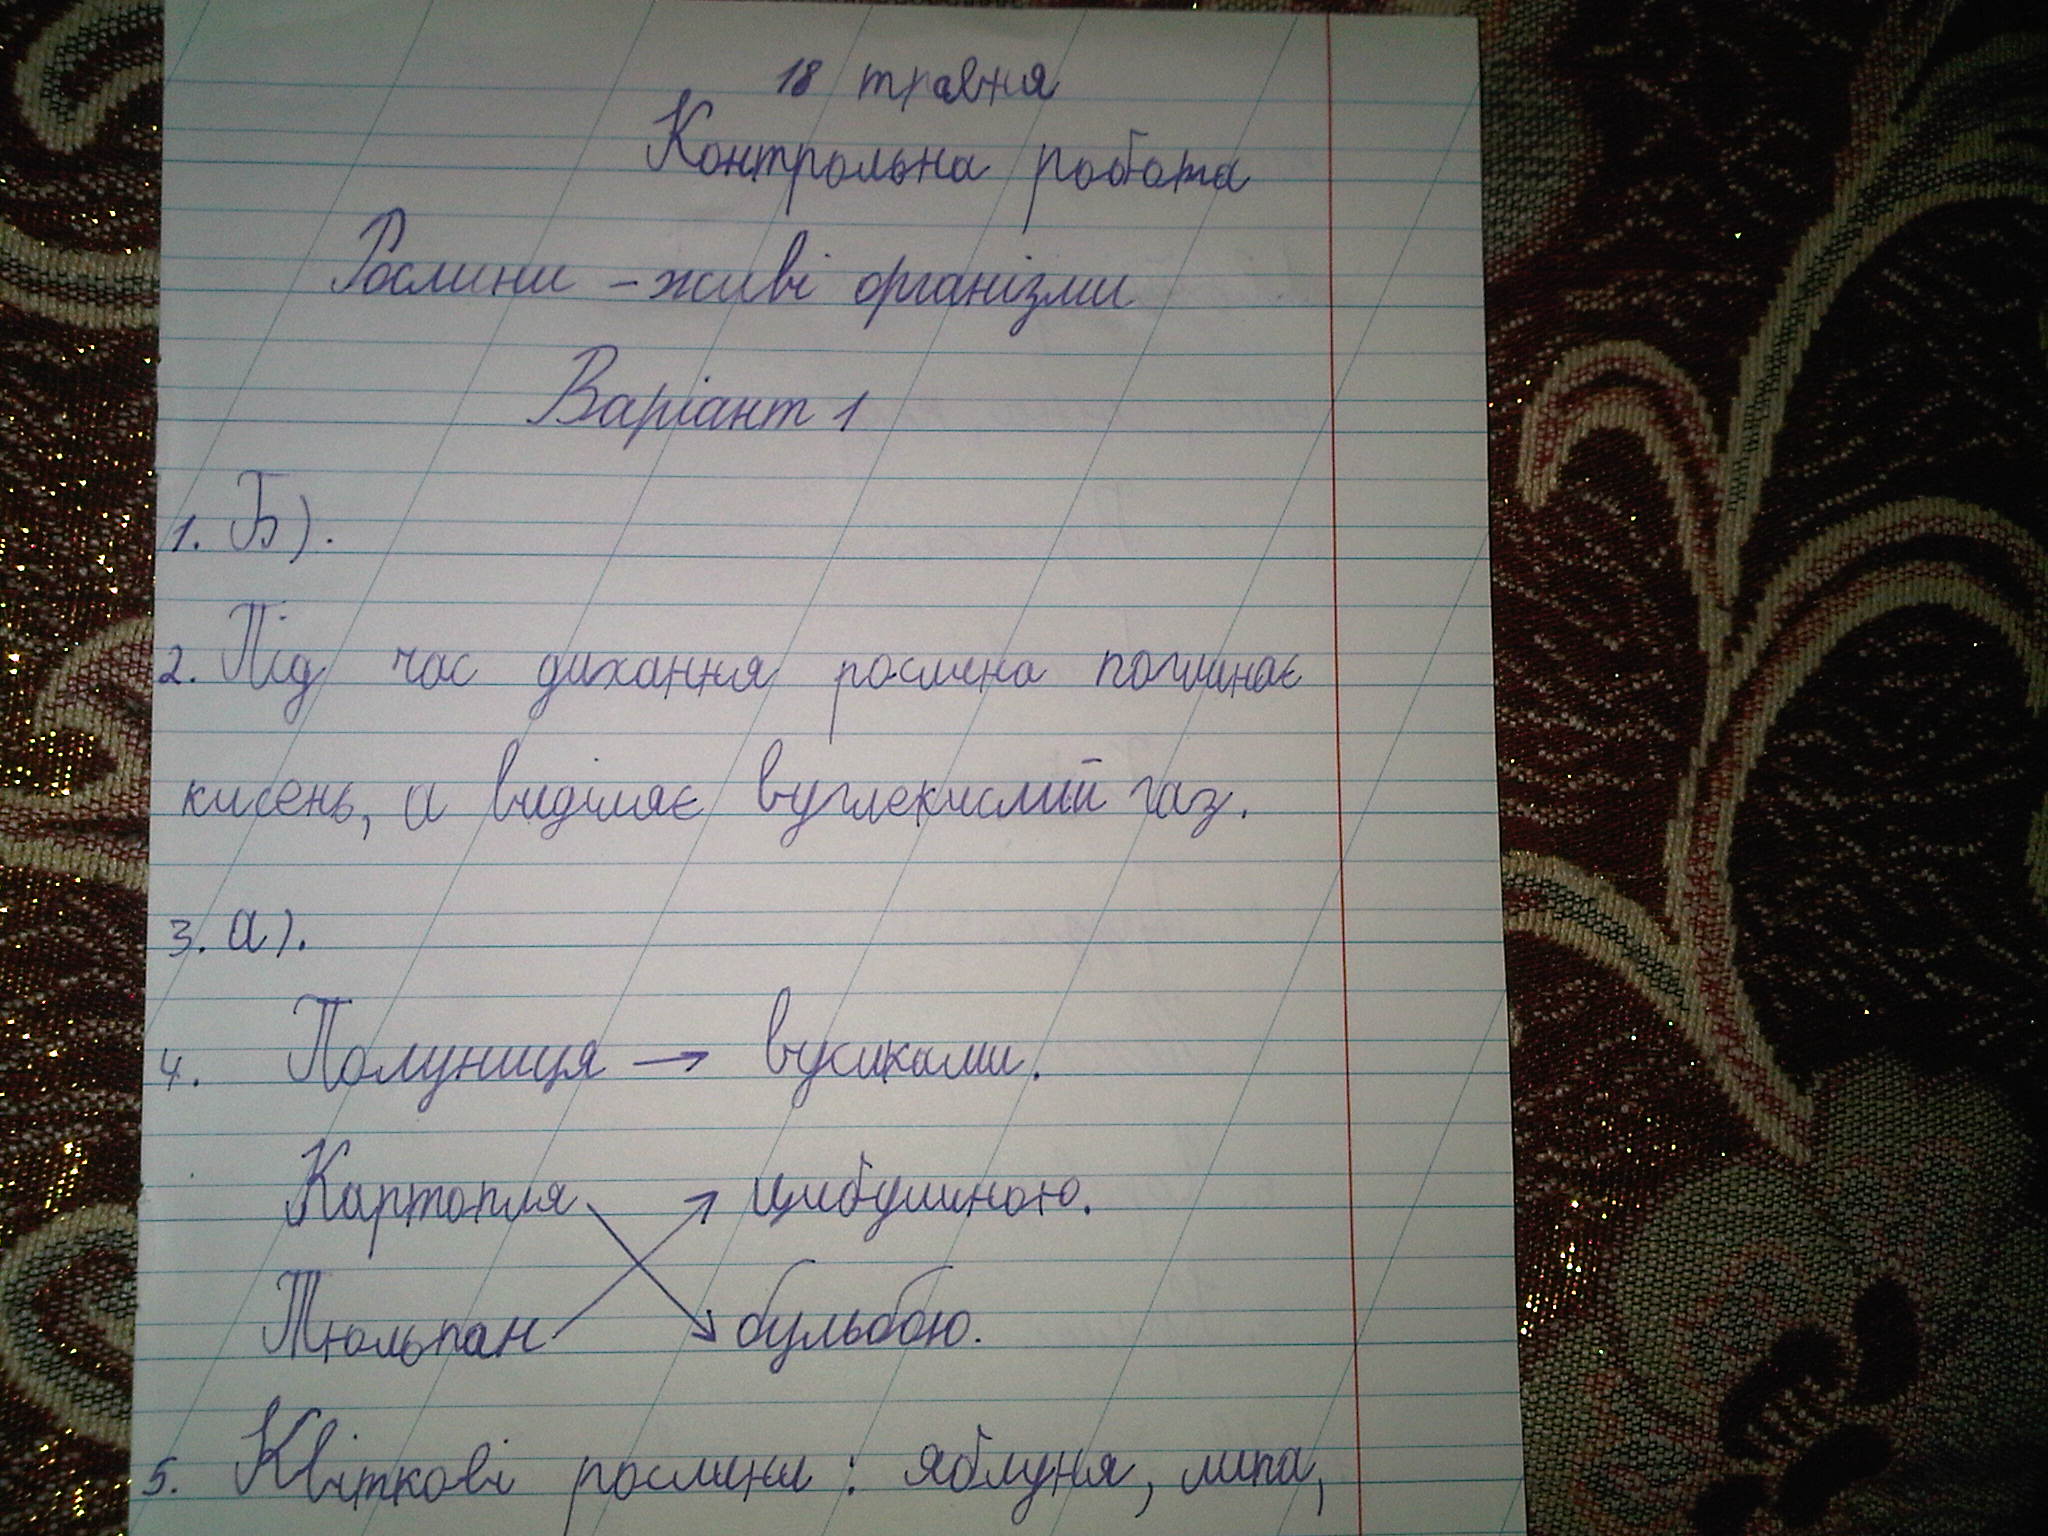 18 травня
Контрольна робота
Рослини – живі організми
Варіант 1
1. Б).
2. Під час дихання рослина поглинає
кисень, а виділяє вуглекислий газ.
3. а).
4. Полуниця → вусиками.
Картопля цибулиною.
Тюльпан бульбою.
5. Квіткові рослини: яблуня, липа,